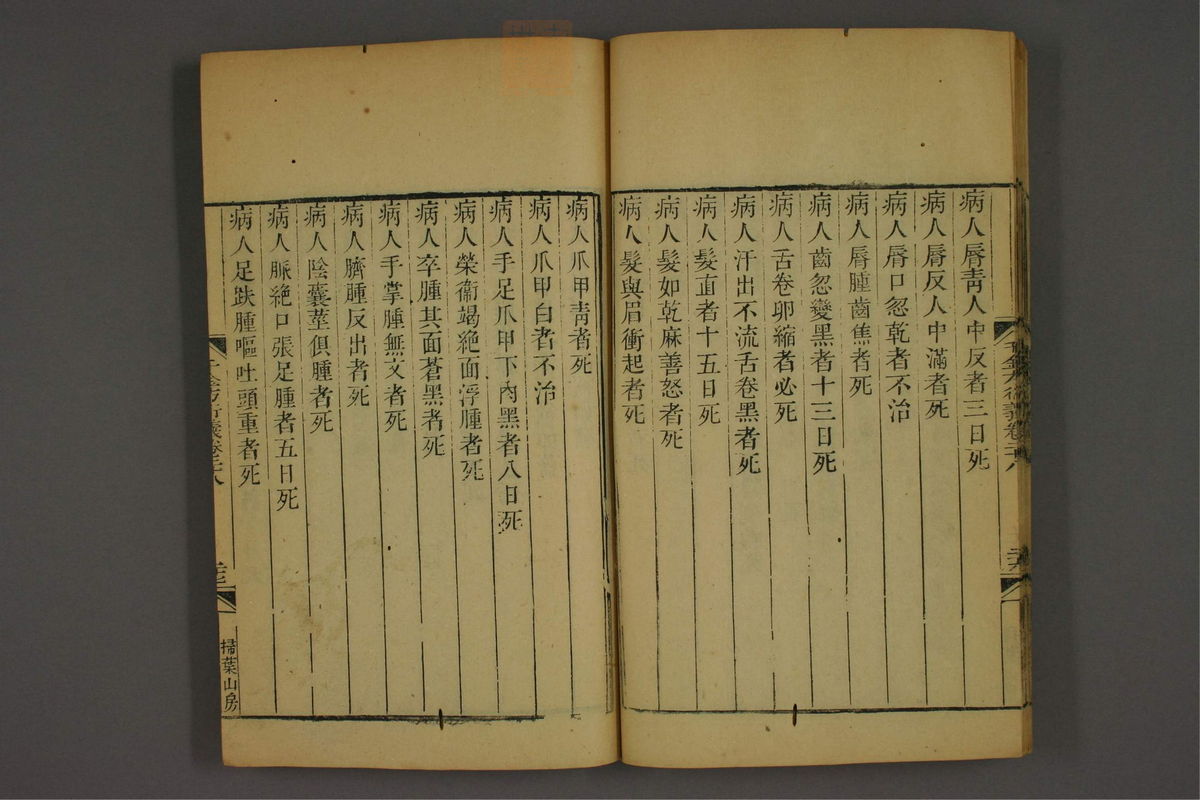 病人唇靑人中反者三日死
病人唇反人中滿者死
病人唇口忽乾者不治
病人唇腫齒焦者死
病人齒忽變黑者十三日死
病人舌卷卵縮者必死
病人汗出不流舌卷黑者死
病人髮直者十五日死
病人髮如乾麻善怒者死
病人髮與眉衝起者死
病人爪甲靑者死
病人爪甲白者不治
病人手足爪甲下肉黑者八日死
病人榮衞竭絶面浮腫者死
病人卒腫其面蒼黑者死
病人手掌腫無文者死
病人臍腫反出者死
病人陰囊莖俱腫者死
病人脈絶口張足腫者五日死
病人足趺腫嘔吐頭重者死
千金方衍義卷二十八
掃葉山房